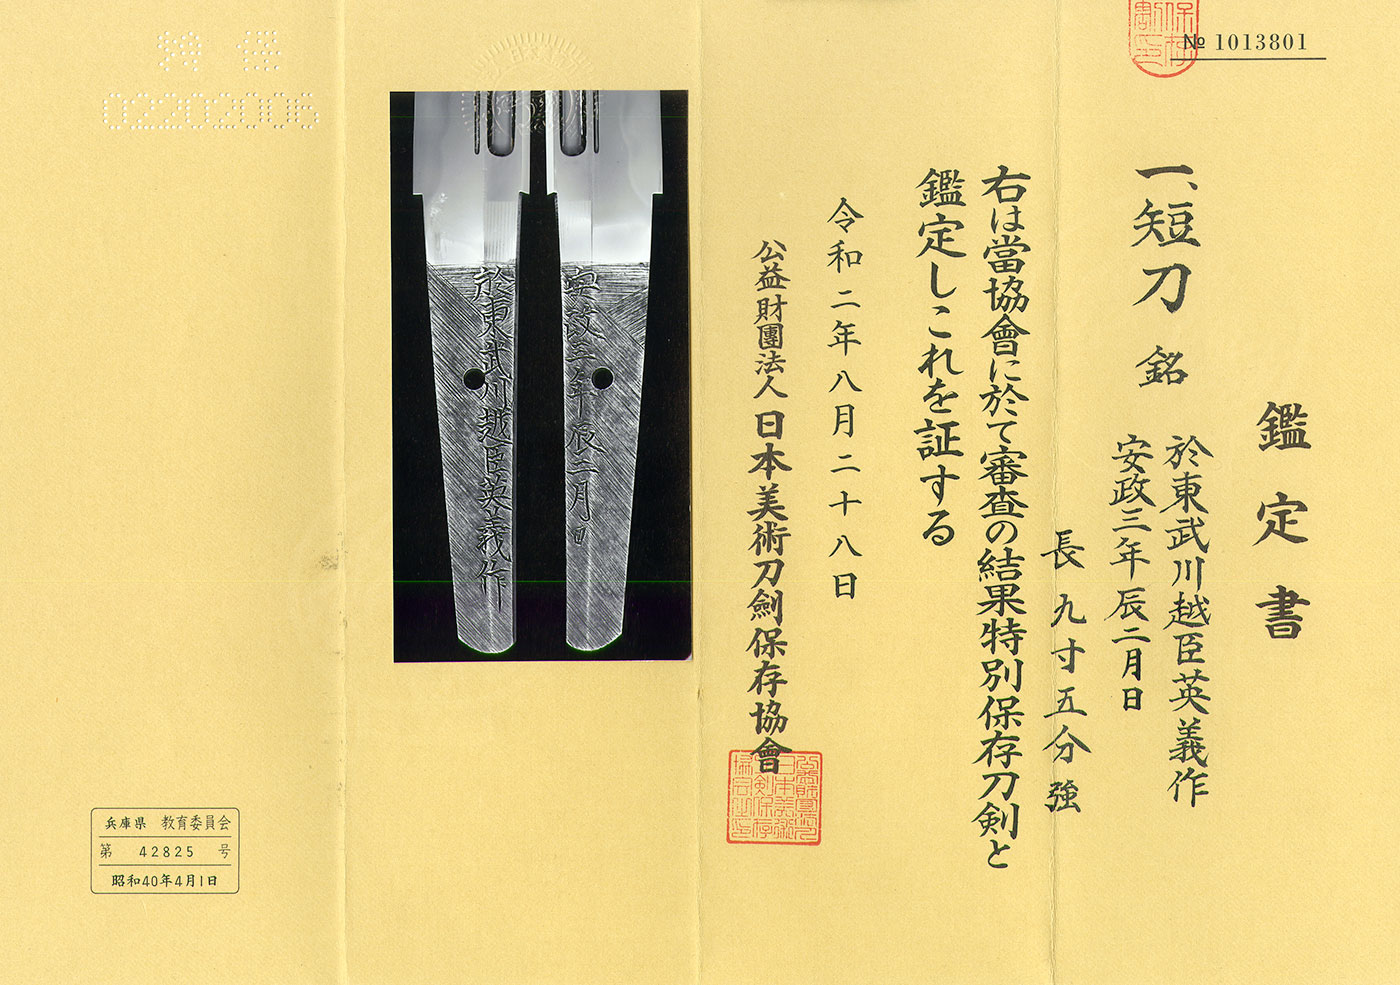 № 1013801
鑑定書
一、短刀 銘
於東武川越臣英義作
安政三年辰二月日
長九寸五分強
右は當協會に於て審査の結果特別保存刀剣と
鑑定しこれを証する
令和二年八月二十八日
公益財團法人 日本美術刀劍保存協會
於東武川越臣英義作
安政三年辰二月日
02202006
兵庫県 教育委員会
第 42825 号
昭和40年4月1日